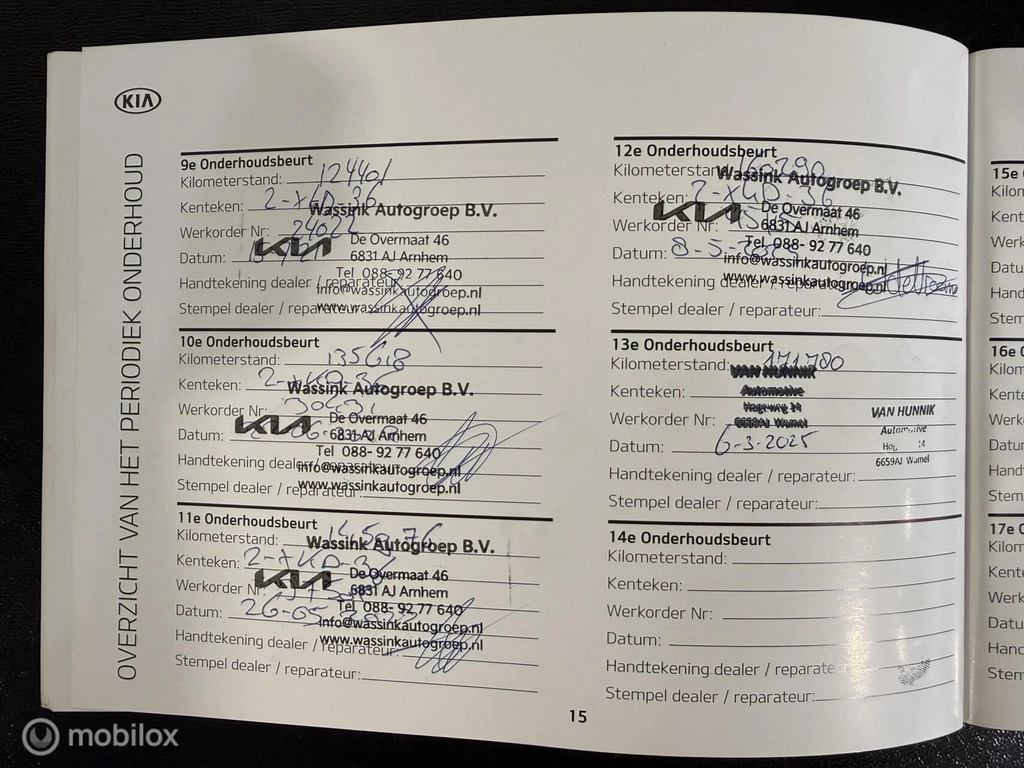 KIA
OVERZICHT VAN HET PERIODIEK ONDERHOUD
9e Onderhoudsbeurt
Kilometerstand: 124401
Kenteken: 2-XKD-36
Wassink Autogroep B.V.
Werkorder Nr:
KIA
De Overmaat 46
6831 AJ Arnhem
Datum:
Tel 088-92 77 640
Handtekening dealer / reparateur:
info@wassinkautogroep.nl
www.wassinkautogroep.nl
Stempel dealer / reparateur:
10e Onderhoudsbeurt
Kilometerstand: 135618
Kenteken: 2-XKD-36
Wassink Autogroep B.V.
Werkorder Nr:
KIA
De Overmaat 46
6831 AJ Arnhem
Datum:
Tel 088-92 77 640
Handtekening dealer / reparateur:
info@wassinkautogroep.nl
www.wassinkautogroep.nl
Stempel dealer / reparateur:
11e Onderhoudsbeurt
Kilometerstand:
Wassink Autogroep B.V.
Kenteken: 2-XKD-36
KIA
De Overmaat 46
6831 AJ Arnhem
Werkorder Nr:
Tel 088-92 77 640
Datum:
info@wassinkautogroep.nl
www.wassinkautogroep.nl
Handtekening dealer / reparateur:
Stempel dealer / reparateur:
12e Onderhoudsbeurt
Kilometerstand: 160290
Wassink Autogroep B.V.
Kenteken: 2-XKD-36
KIA
De Overmaat 46
6831 AJ Arnhem
Werkorder Nr:
Tel 088-92 77 640
Datum:
info@wassinkautogroep.nl
www.wassinkautogroep.nl
Handtekening dealer / reparateur:
Stempel dealer / reparateur:
13e Onderhoudsbeurt
Kilometerstand: 171780
VAN HUNNIK
Kenteken:
Automotive
Hogeweg 14
Werkorder Nr:
6659AJ Wamel
Datum: 6-3-2025
VAN HUNNIK
Automotive
14
6659AJ Wamel
Handtekening dealer / reparateur:
Stempel dealer / reparateur:
14e Onderhoudsbeurt
Kilometerstand:
Kenteken:
Werkorder Nr:
Datum:
Handtekening dealer / reparateur:
Stempel dealer / reparateur:
15
15e
Kilom
Kent
Werk
Datu
Hand
Stem
16e
Kilom
Kente
Werk
Datu
Hand
Stem
17e
Kilom
Kente
Werk
Datu
Hand
Stem
mobilox